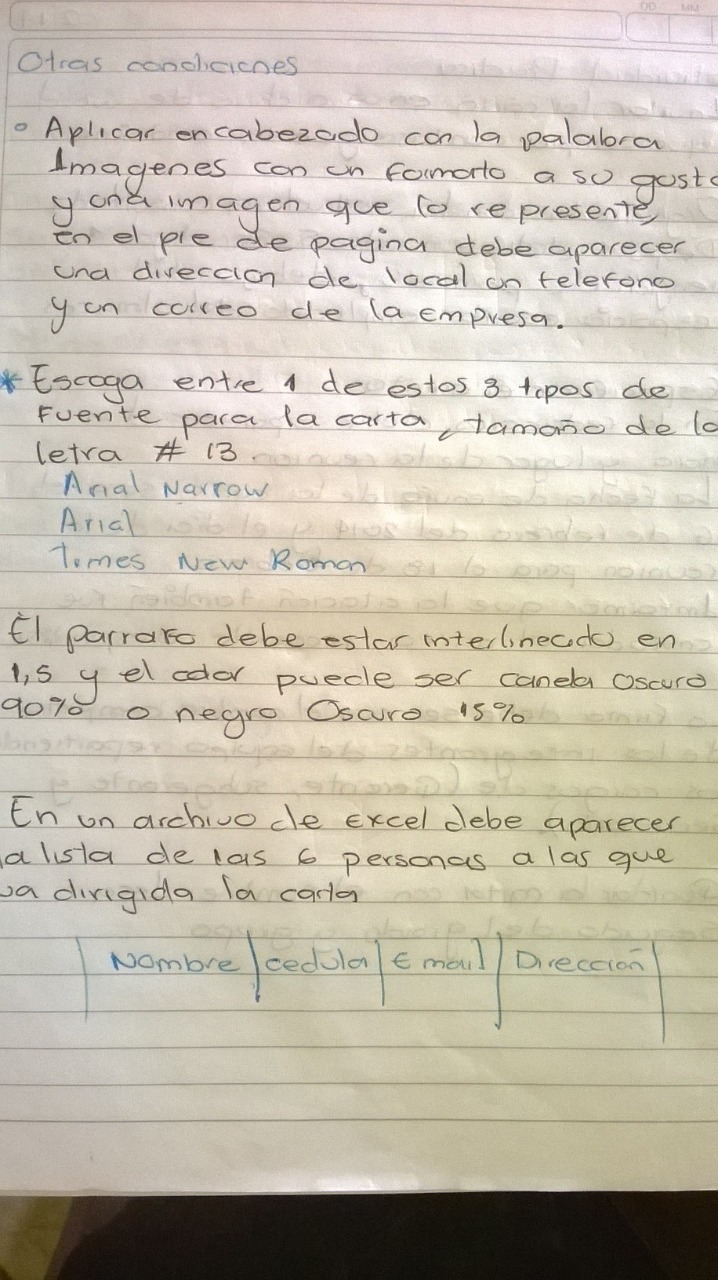 DD MM
Otras condiciones
Aplicar encabezado con la palabra
Imagenes con un formato a su gusto
y una imagen que lo represente,
En el pie de pagina debe aparecer
una direccion de local un telefono
y un correo de la Empresa.
* Escoga entre 1 de estos 3 tipos de
Fuente para la carta, tamaño de la
letra # 13.
Arial Narrow
Arial
Times New Roman
El parrafo debe estar interlineado en
1,5 y el color puede ser canela oscuro
90% o negro Oscuro 15%
En un archivo de Excel debe aparecer
la lista de las 6 personas a las que
va dirigida la carta
Nombre | cedula | Email | Dirección